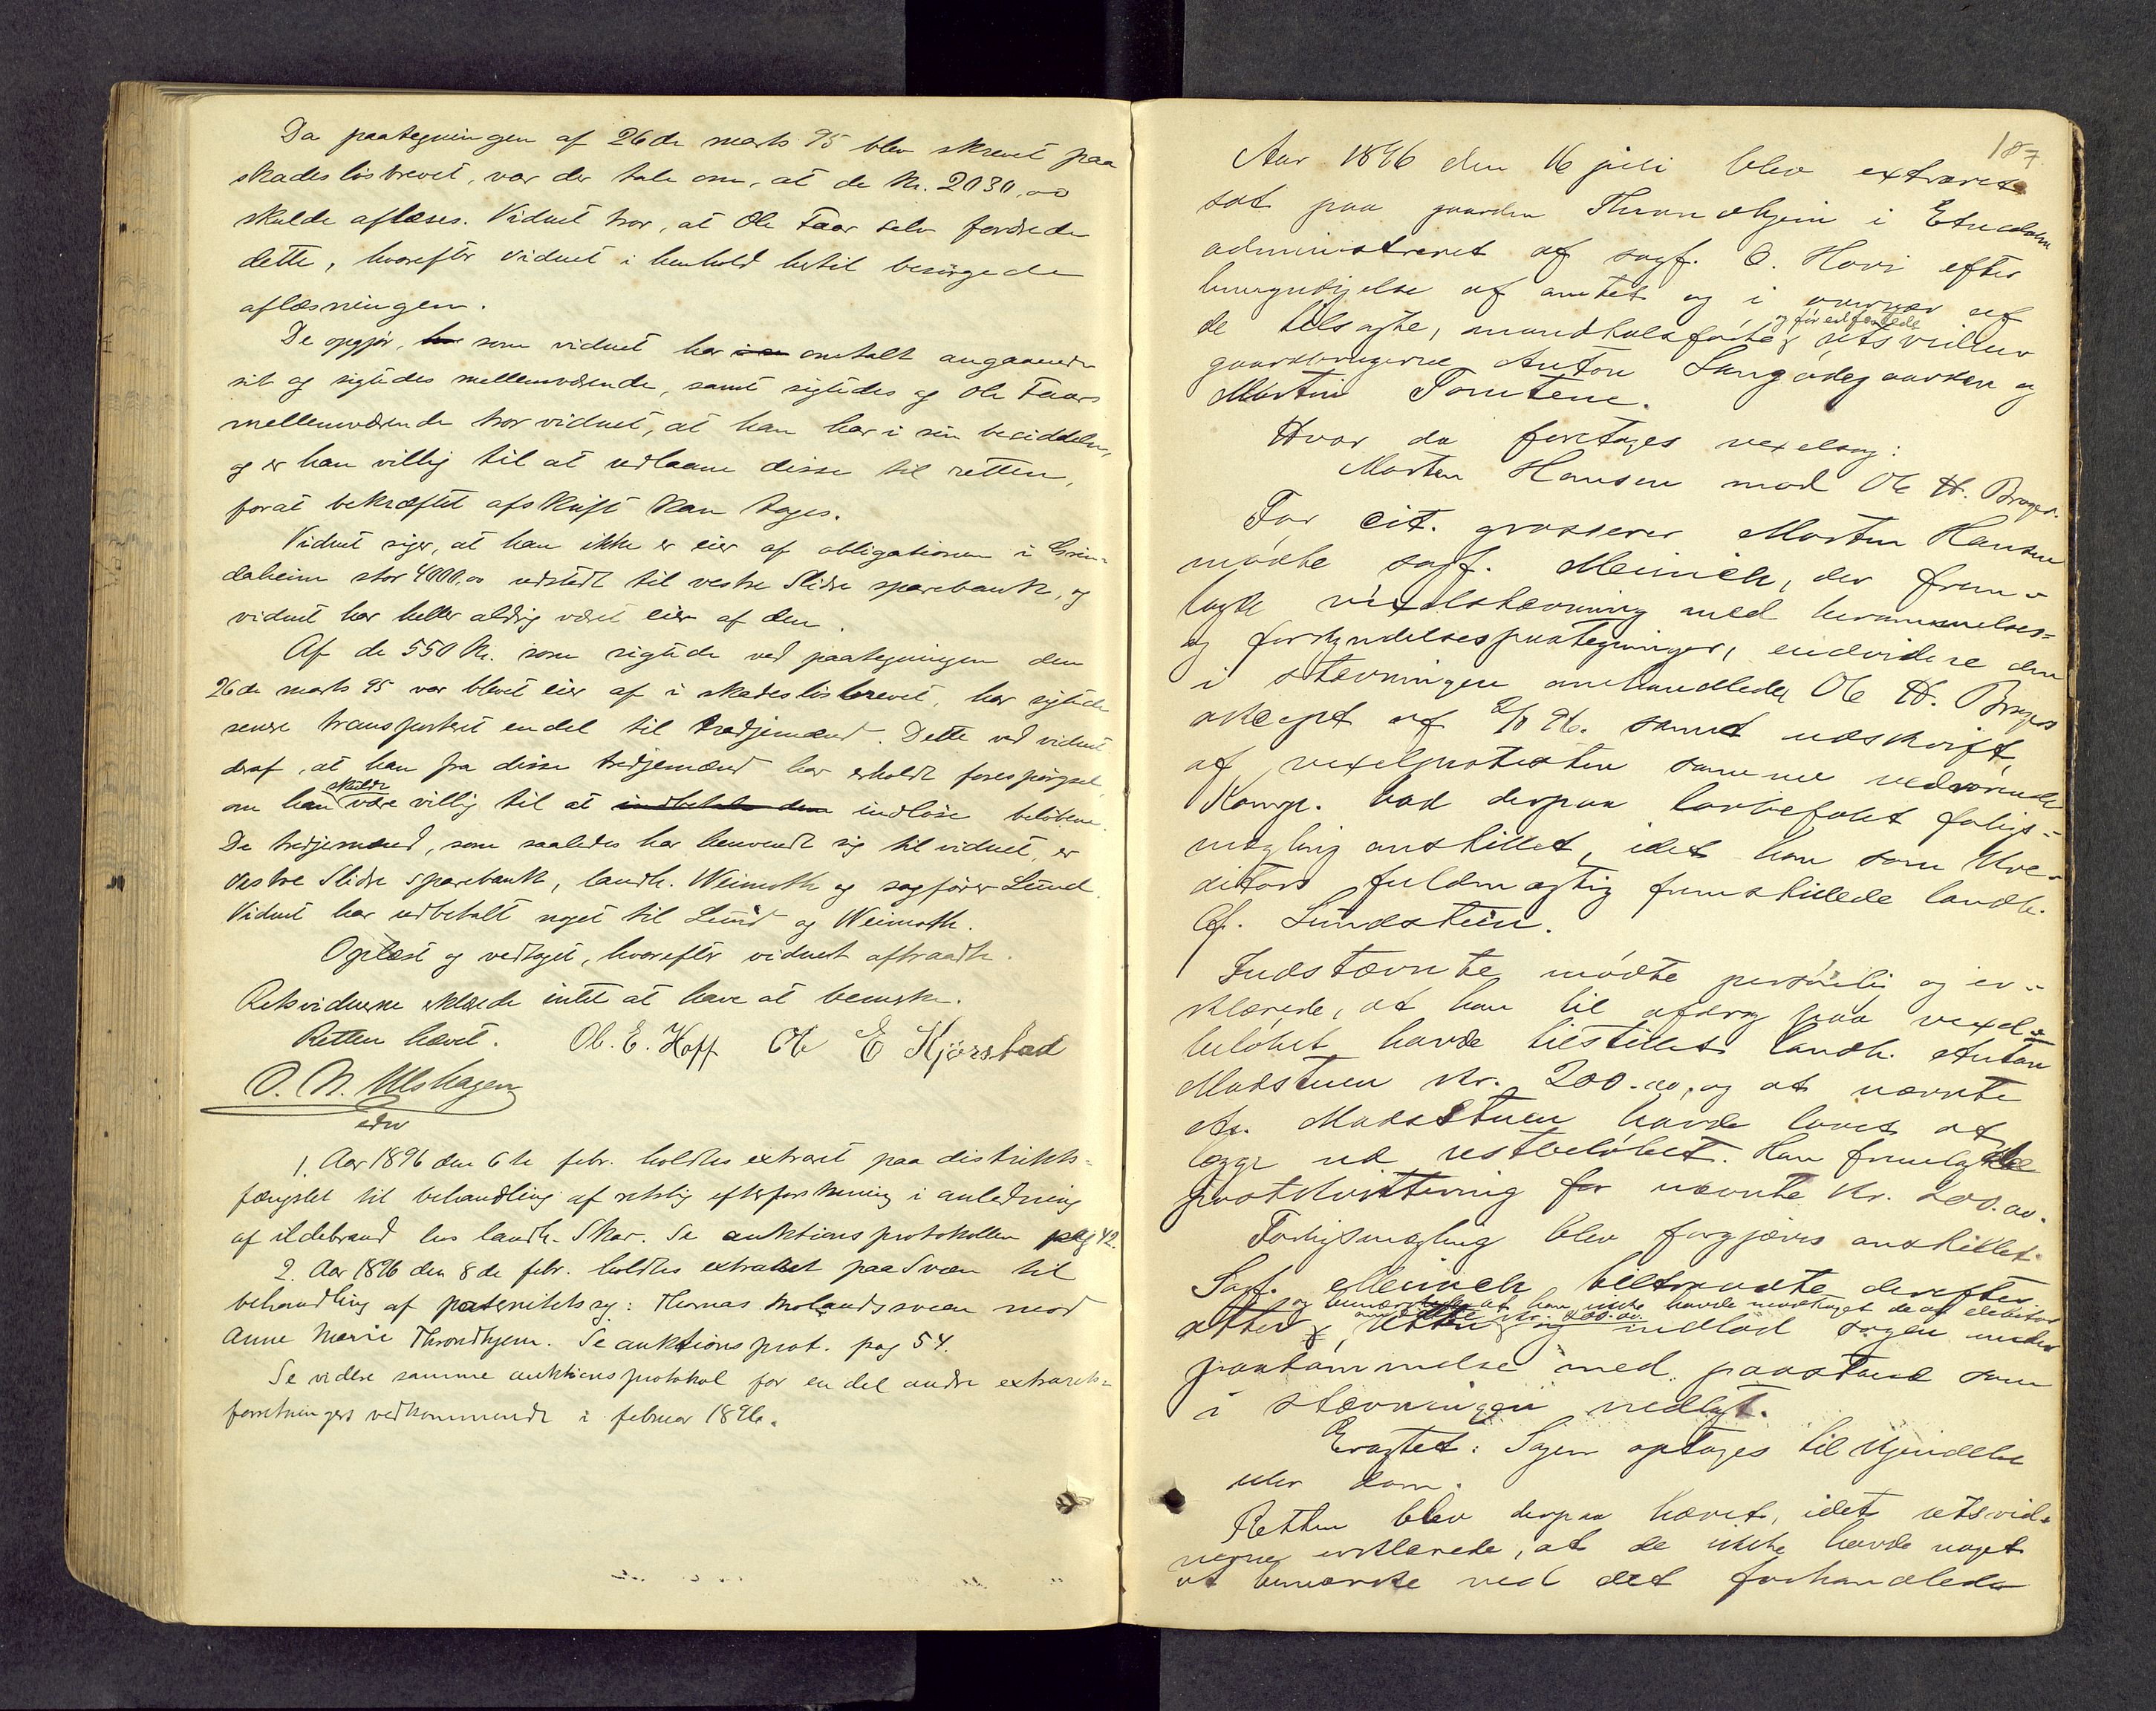 Da paategningen af 26de marts 95 blev skrevet paa
skadesløsbrevet, var der tale om, at de Kr. 2030,00
skulde aflæses. Vidnet tror, at Ole Faar selv fordrede
dette, hvorefter vidnet i henhold hertil besørgede
aflæsningen.
De opgjør, som vidnet har omtalt angaaende
sit og sigtedes mellemværende, samt sigtedes og Ole Faars
mellemværende tror vidnet, at han har i sin besiddelse,
og er han villig til at udlaane disse til retten,
forat bekræftet afskrift kan tages.
Vidnet siger, at han ikke er eier af obligationen i Grin-
daheim stor 4000,00 udstedt til vestre Slidre sparebank, og
vidnet har heller aldrig været eier af den.
Af de 550 Kr. som sigtede ved paategningen den
26de marts 95 var blevet eier af i skadesløsbrevet, har sigtede
senere transporteret endel til tredjemænd. Dette ved vidnet
deraf, at han fra disse tredjemænd har erholdt forespørgsel,
om han skulde være villig til at indbetale dem indløse beløbene.
De tredjemænd, som saaledes har henvendt sig til vidnet, er
vestre Slidre sparebank, landh. Weimoth og sagfører Lund.
Vidnet har udbetalt noget til Lund og Weimoth.
Oplæst og vedtaget, hvorefter vidnet aftraadte.
Retsvidnerne erklærede intet at have at bemerke.
Retten hævet. Ol. E. Hoff Ole E Kjørstad
O. N. Ulshagen
edw
1. Aar 1896 den 6te febr. holdtes extraret paa distrikts-
fængslet til behandling af retslig efterforskning i anledning
af ildebrand hos landh. Skar. Se auktionsprotokollen pag 42.
2. Aar 1896 den 8de febr. holdtes extraret paa Svæn til
behandling af paternitetssag: Thomas Molandssveen mod
Anne Marie Throndhjem. Se auktionsprot. pag 54.
Se videre samme auktionsprotokol for en del andre extrarets-
forretningers vedkommende i februar 1896.
187
Aar 1896 den 16 juli blev extraret
sat paa gaarden Thronehjem i Etnedalen
administreret af sagf. O. Hovi efter
bemyndigelse af amtet og i overvær af
og før edfæstede
de tilsagte, mandtalsførte retsvidner
gaardbrugerne Anton Langødegaarden og
Martin Tomtene.
Hvor da foretages vexelsag:
Morten Hansen mod Ole H. Brager.
For cit. grosserer Morten Hansen
mødte sagf. Meinich, der frem-
lagde vexelstevning med berammelses-
og forkyndelsespaategninger, endvidere den
i stevningen omhandlede Ole H. Bragers
aksept af 2/11 96. samt udskrift
af vexelprotesten samme vedrørende
Komp. bad derpaa lovbefalet forligs-
mægling anstillet, idet han som Kre-
ditors fuldmægtig fremstillede landh.
Lundstein.
Indstævnte mødte personlig og er-
klærede, at han til afdrag paa vexel-
beløbet havde tilstillet landh. Anton
Madstuen Kr. 200.00, og at nævnte
A. Madsstuen havde lovet at
lægge ud restbeløbet. Han fremlagde
postkvittering for nævnte Kr. 200.00.
Forligsmægling blev forgjæves anstillet.
Sagf. Meinich tiltraadte derefter
og bemærkede at han ikke havde modtaget de af debitor
omtalte Kr. 200.00.
retten og indlod sagen under
paatømmelse med paastand som
i stævningen nedlagt.
Eragtet: Sagen optages til Kjendelse
eller dom.
Retten blev derpaa hævet, idet retsvid-
nerne erklærede, at de ikke havde noget
at bemærke ved det forhandlede